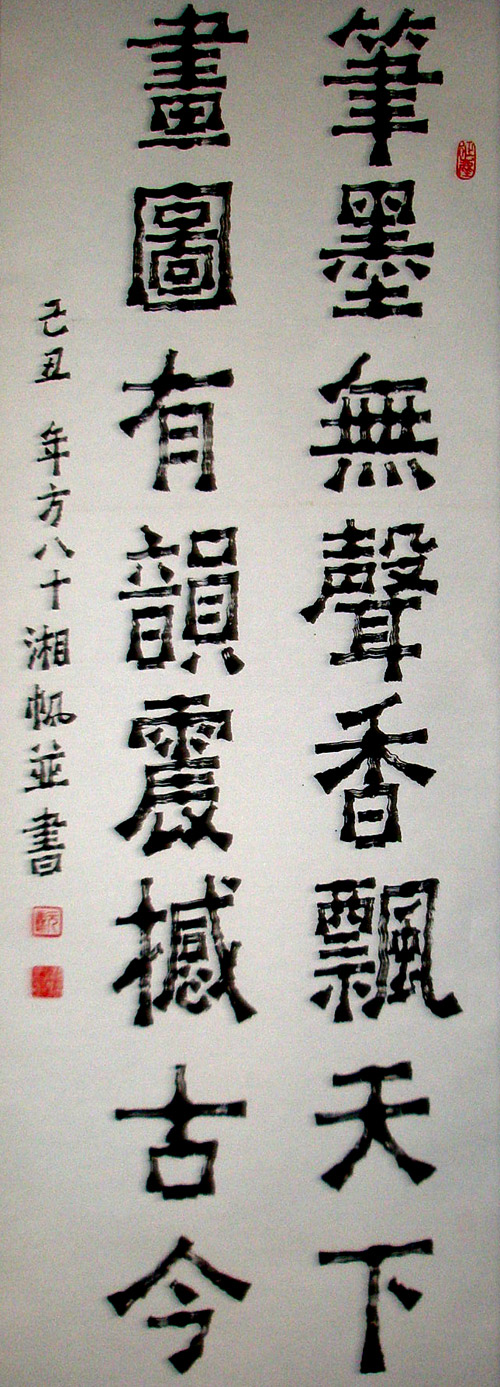 筆墨無聲香飄天下
畫圖有韻震撼古今
己丑年方八十湘帆並書